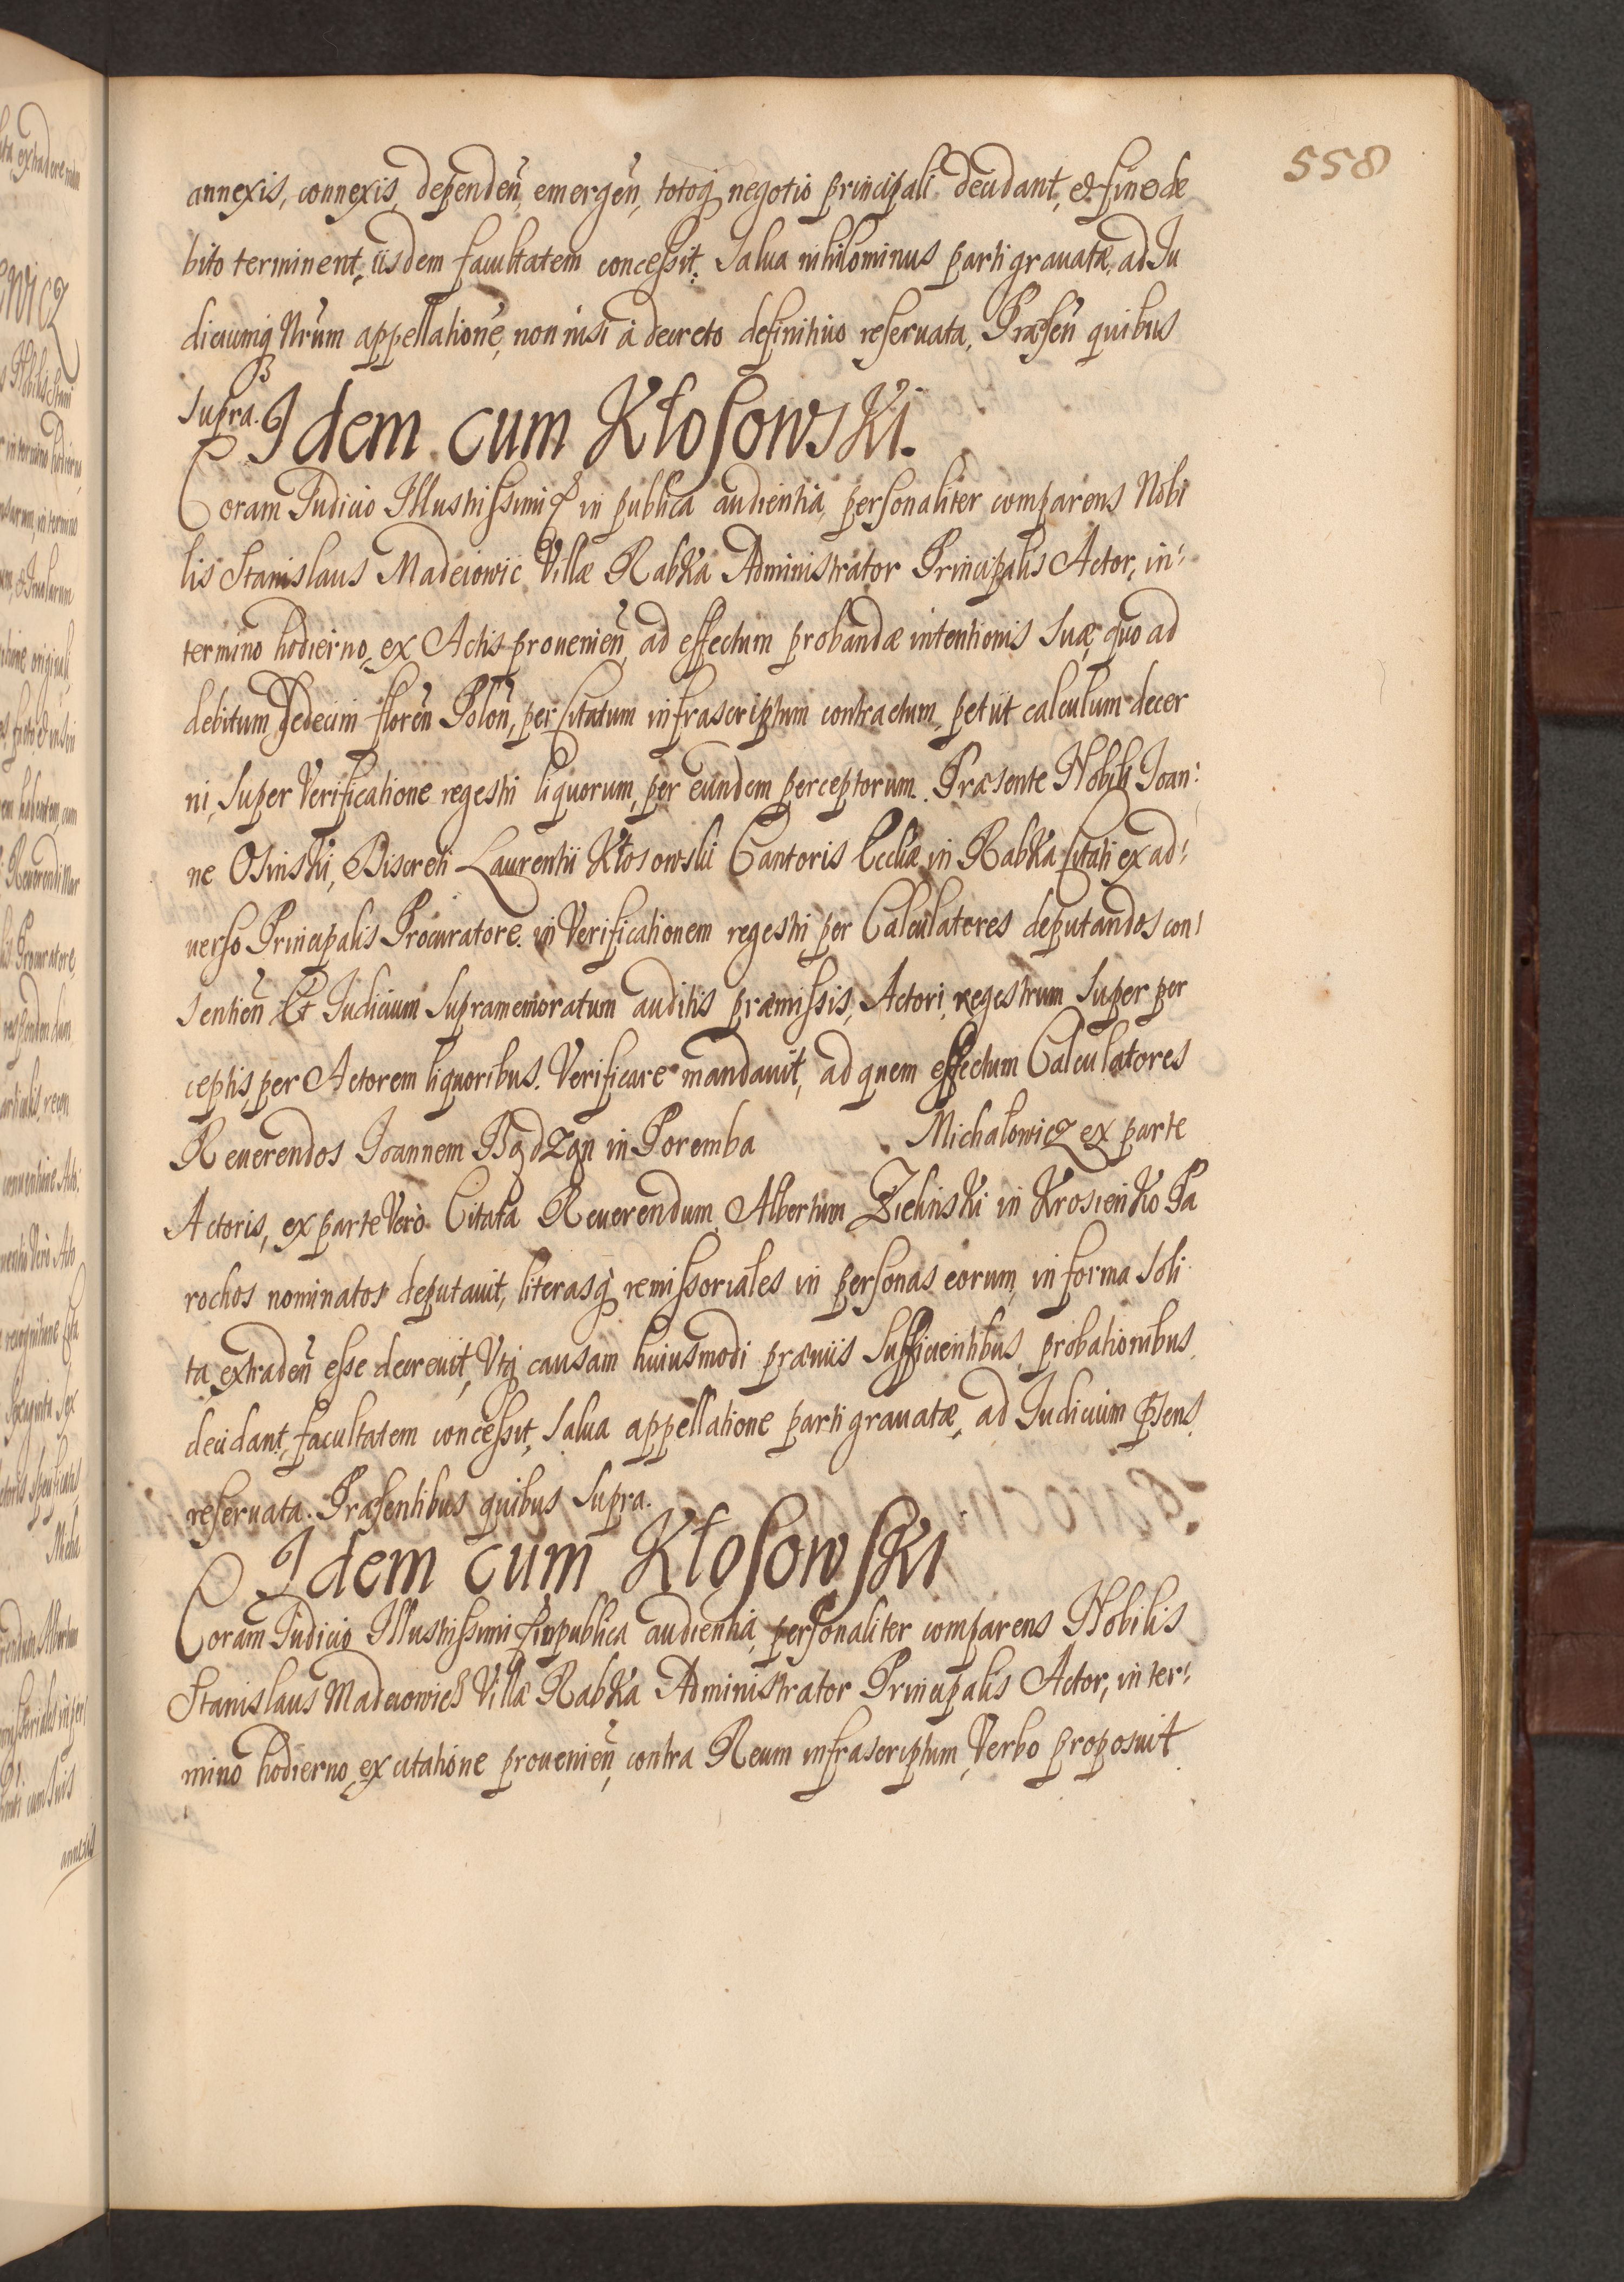 558
annexis, connexis, dependeñ, emergeñ, totoq negotio principali decidant, et fine de
bito terminent, iisdem facultatem concessit. Salua nihilominus parti grauatæ, ad Iu
diciumq Nrũm appellatione, non nisi à decreto definitiuo reseruata, Præseñ quibus
supra.
Idem cum Kłosowski.
Coram Iudicio Illustrissimi in publica audientia, personaliter comparens Nobi
lis Stanislaus Madeiowic Villæ Rabka Administrator Principalis Actor, in
termino hodierno, ex Actis prouenieñ, ad effectum probandæ intentionis suæ, quo ad
debitum sedecim floreñ Poloñ, per Citatum infrascriptum contractum, petiit calculum decer
ni, super Verificatione regestri liquorum, per eundem perceptorum. Præsente Nobili Ioan:
ne Osinski, Discreti Laurentii Kłosowski Cantoris Eccliæ in Rabka Citati ex ad:
uerso Principalis Procuratore. in Verificationem regestri per Calculatores deputandos con:
sentieñ Et Iudicium supramemoratum auditis præmissis, Actori, regestrum super per
ceptis, per Actorem liquoribus. Verificare mandauit, ad quem effectum Calculatores
Reuerendos Ioannem Bądzyn in Poremba Michalowicz ex parte
Actoris, ex parte Verò Citata Reuerendum Albertum Zielinski in Krosienko Pa
rochos nominatos deputauit, literasq remissoriales in personas eorum, in forma soli
ta extradeñ esse decreuit, Vtq causam huiusmodi præuiis sufficientibus probationibus,
decidant, facultatem concessit, salua appellatione parti grauatæ, ad Iudicium psens
reseruata. Præsentibus quibus supra.
Idem cum Kłosowski
Coram Iudicio Illustrissimi in publica audientia, personaliter comparens Nobilis
Stanislaus Madeiowicz Villæ Rabka Administrator Principalis Actor, in ter:
mino hodierno, ex citatione prouenieñ, contra Reum infrascriptum, Verbo proposuit